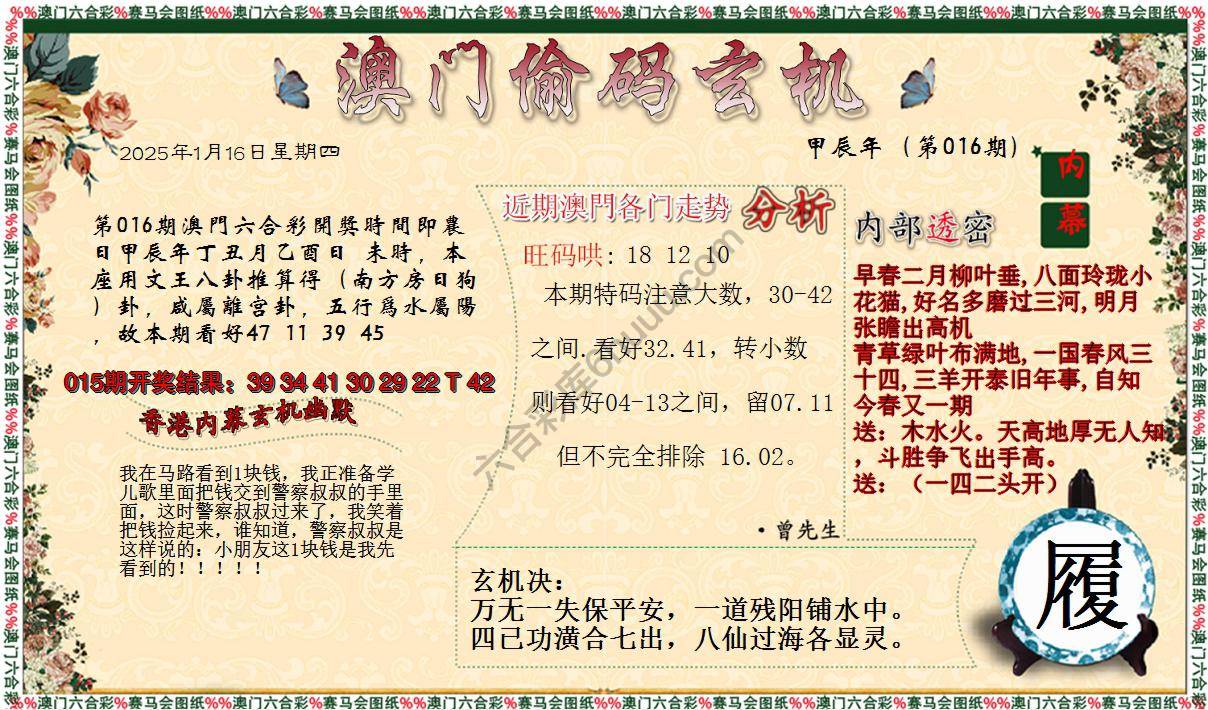 %%澳门六合彩%赛马会图纸%%澳门六合彩%赛马会图纸%%澳门六合彩%赛马会图纸%%澳门六合彩%赛马会图纸%%澳门六合彩%赛马会图纸%%澳门六合彩%赛马会图纸
澳门偷码玄机
2025年1月16日星期四
甲辰年（第016期）
内幕
第016期澳門六合彩開獎時間即農
日甲辰年丁丑月乙酉日 未時，本
座用文王八卦推算得（南方房日狗
）卦，咸屬離宫卦，五行爲水屬陽
，故本期看好47 11 39 45
015期开奖结果：39 34 41 30 29 22 T 42
香港内幕玄机幽默
我在马路看到1块钱，我正准备学
儿歌里面把钱交到警察叔叔的手里
面，这时警察叔叔过来了，我笑着
把钱捡起来，谁知道，警察叔叔是
这样说的：小朋友这1块钱是我先
看到的！！！！！
近期澳門各门走势 分析
旺码哄: 18 12 10
本期特码注意大数，30-42
之间.看好32.41，转小数
则看好04-13之间，留07.11
但不完全排除 16.02。
·曾先生
内部透密
早春二月柳叶垂,八面玲珑小
花猫,好名多磨过三河,明月
张瞻出高机
青草绿叶布满地,一国春风三
十四,三羊开泰旧年事,自知
今春又一期
送：木水火。天高地厚无人知
，斗胜争飞出手高。
送：（一四二头开）
玄机决：
万无一失保平安，一道残阳铺水中。
四已功潢合七出，八仙过海各显灵。
履
%%澳门六合彩%赛马会图纸%%澳门六合彩%赛马会图纸%%澳门六合彩%赛马会图纸%%澳门六合彩%赛马会图纸%%澳门六合彩%赛马会图纸%%澳门六合彩%赛马会图纸